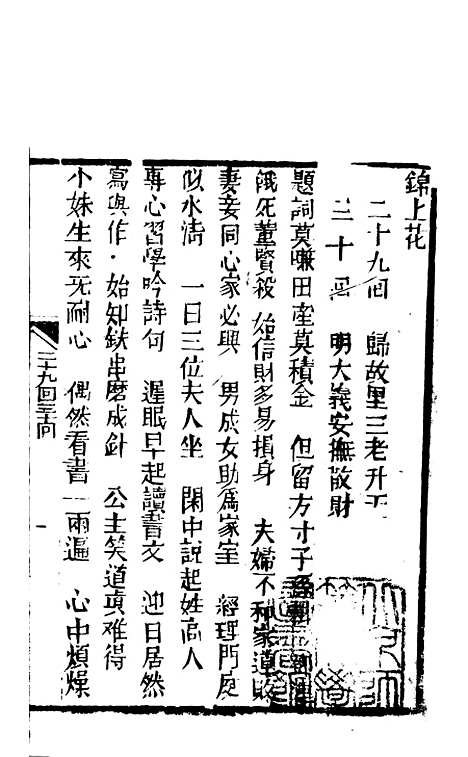 錦上花
二十九回　歸故里三老升天
三十囘　明大義安撫散財
題詞莫嫌田產莫積金　但留方寸子孫耕
餓死董賢殺　始信財多易損身　夫婦不和家道敗
妻妾同心家必興　男成女助爲家室　經理門庭
似水淸　一日三位夫人坐　閑中說起姓高人
專心習學吟詩句　遲眠早起讀書文　迎日居然
寫與作・始知鉄串磨成針　公主笑道真难得
小妹生來无耐心　偶然看書一兩遍　心中煩燥
二十九回三十回
一